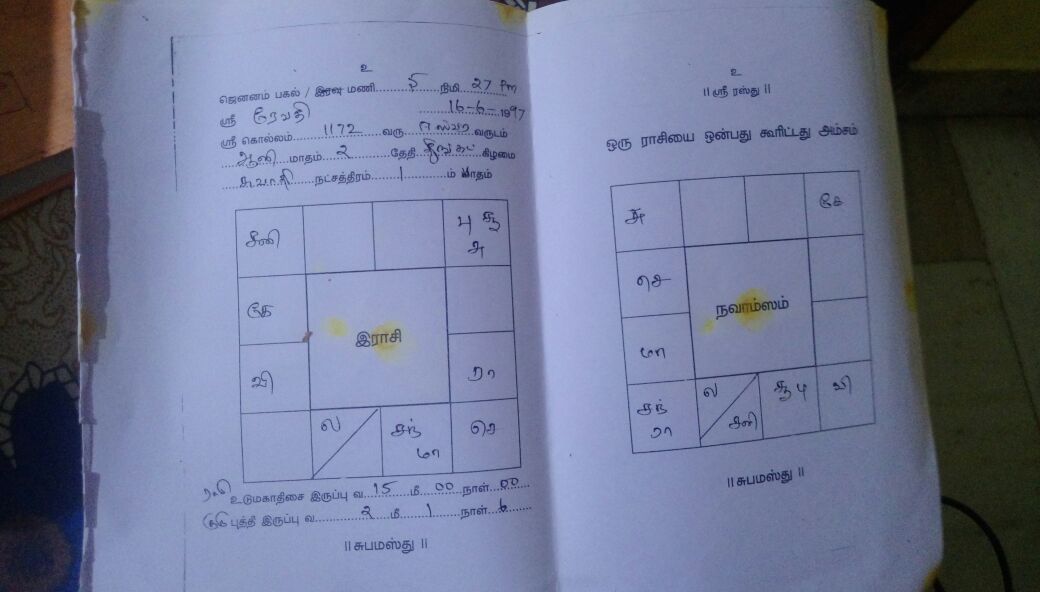 உ
ஜெனனம் பகல் / இரவு மணி 5 நிமி 27 Pm
ஸ்ரீ ரேவதி 16-6-1997
ஸ்ரீ கொல்லம் 1172 வரு ஈஸ்வர வருடம்
ஆனி மாதம் 2 தேதி திங்கட் கிழமை
சுவாதி நட்சத்திரம் 1 ம் பாதம்
சனி
பு சூ
அ
கே
இராசி
வி
ரா
ல
சந்
மா
செ
ராகு உடுமகாதிசை இருப்பு வ 15 மீ 00 நாள் 00
குரு புத்தி இருப்பு வ 2 மீ 1 நாள் 6
|| சுபமஸ்து ||
உ
|| ஸ்ரீ ரஸ்து ||
ஒரு ராசியை ஒன்பது கூரிட்டது அம்சம்
அ
கே
செ
நவாம்ஸம்
மா
சந்
ரா
ல
சனி
சூ பு
வி
|| சுபமஸ்து ||